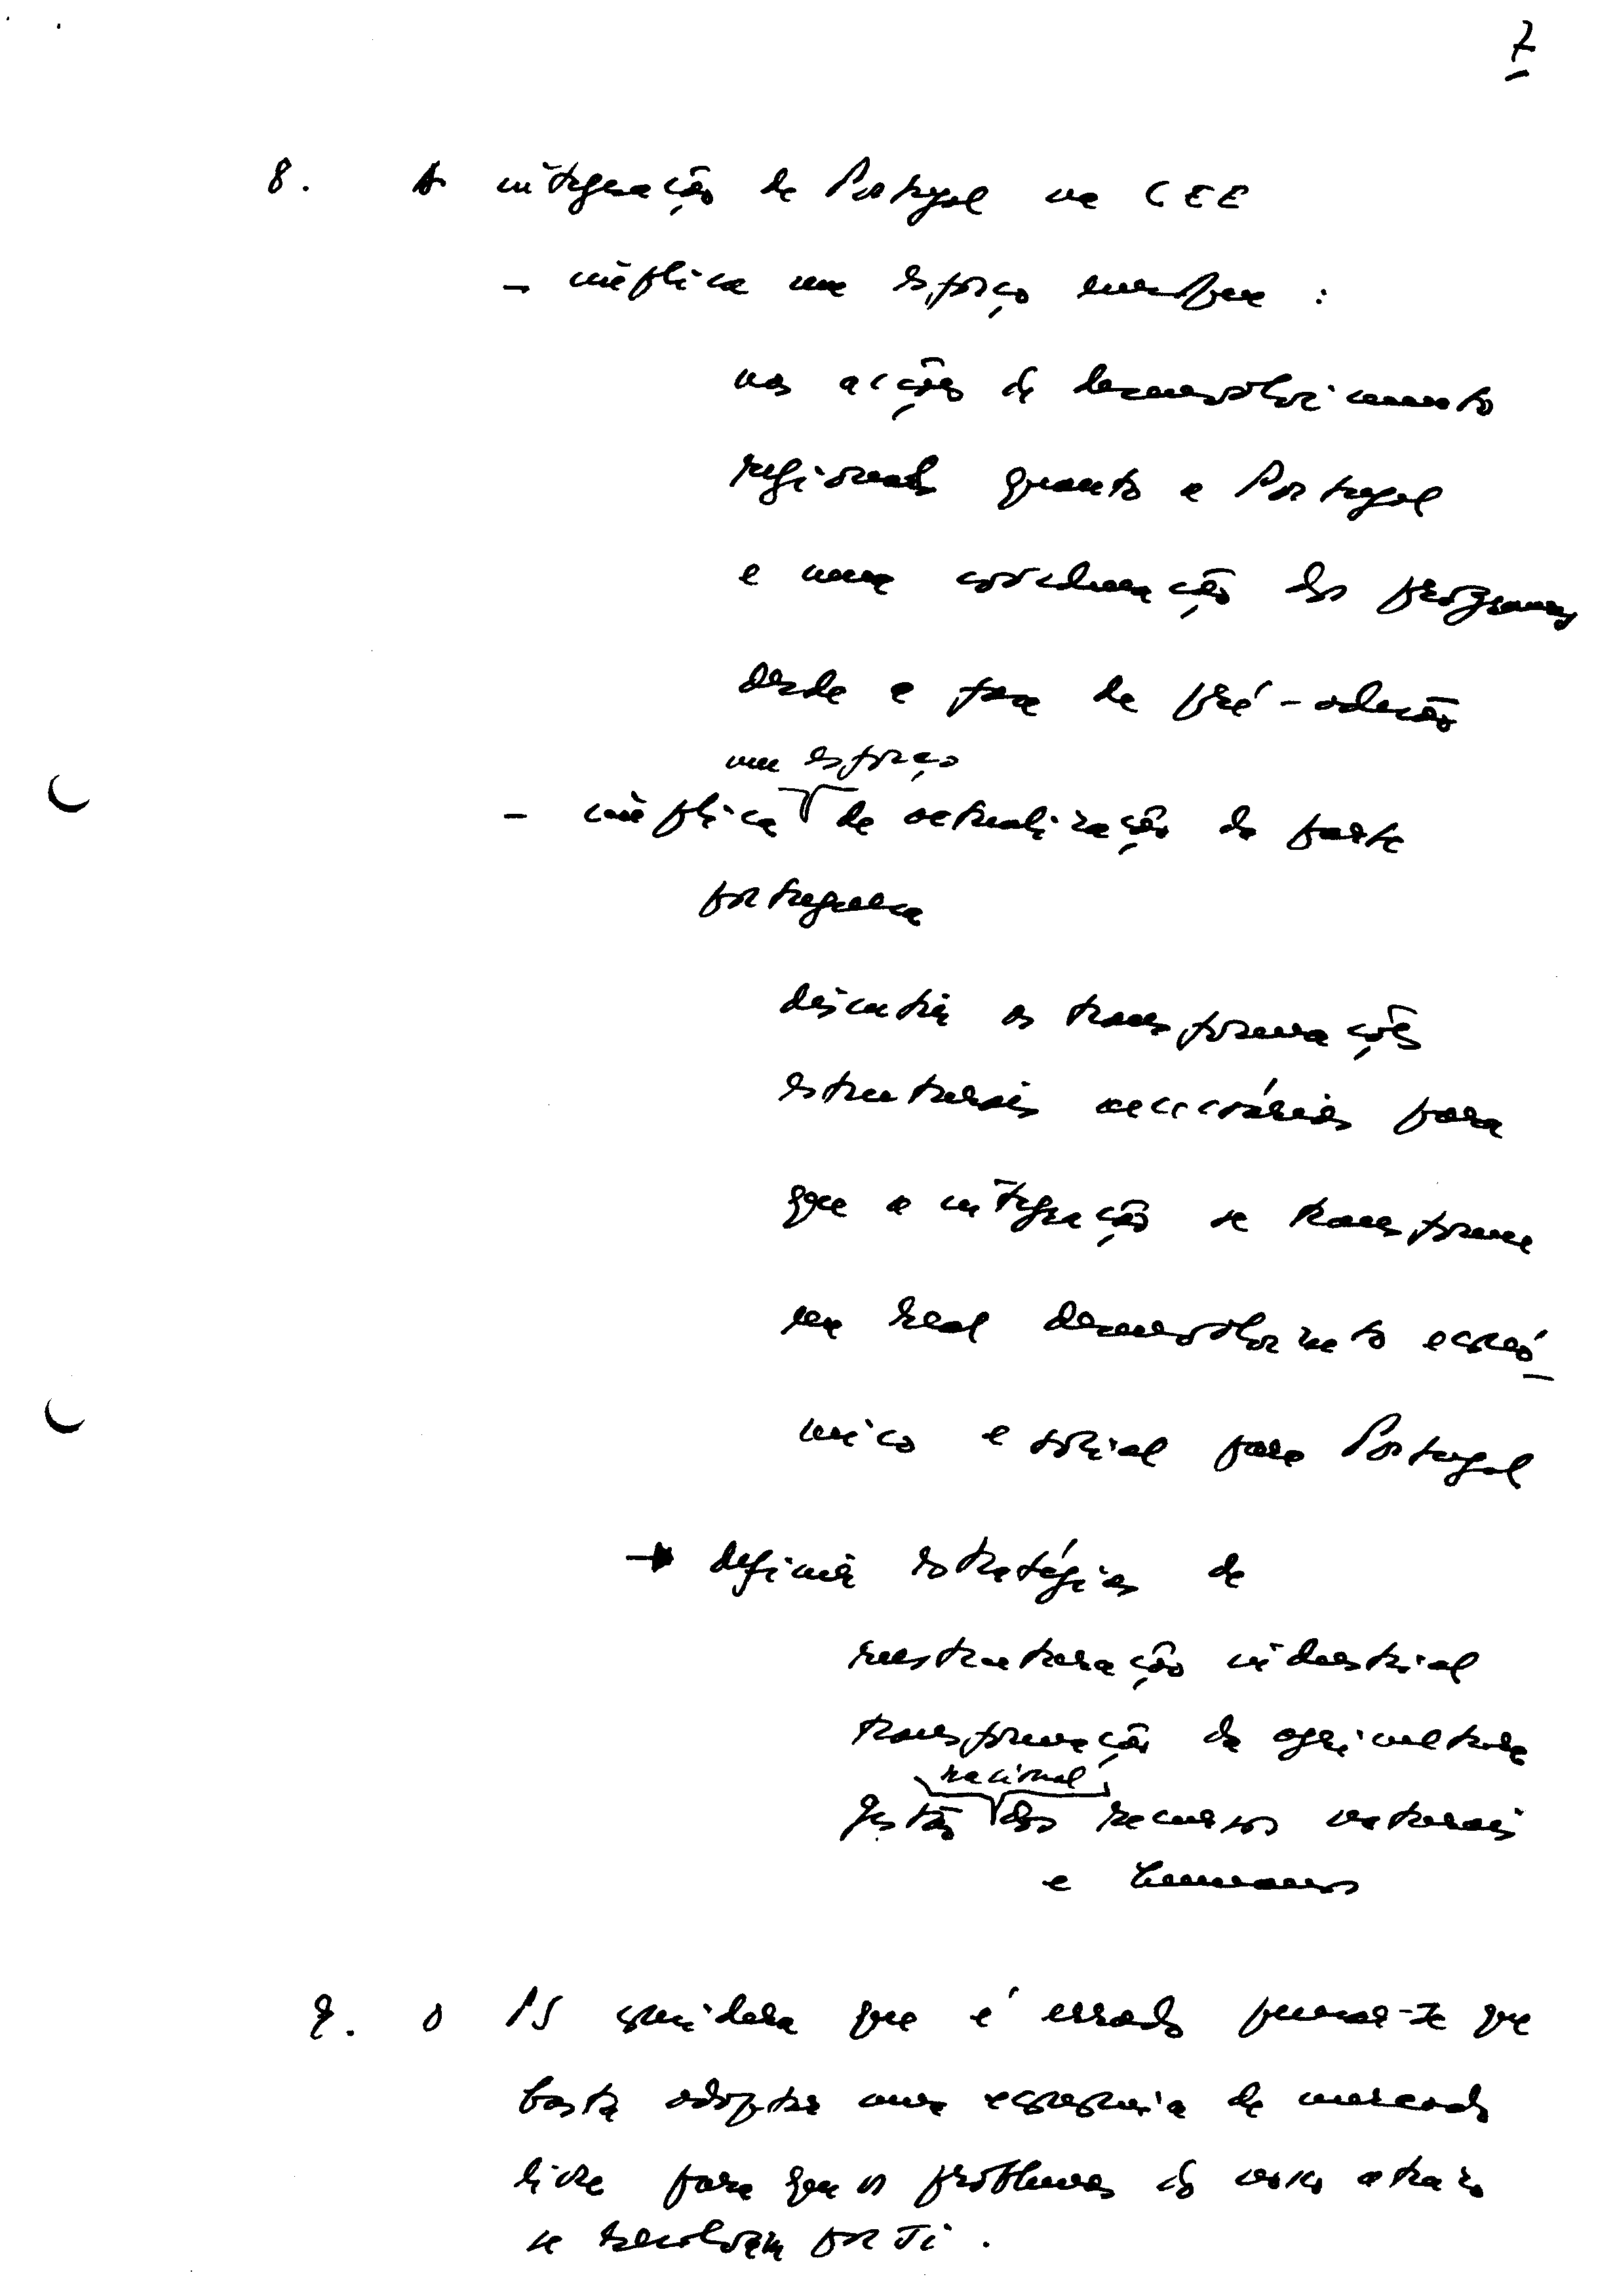 7
8. A integração de Portugal na CEE
- implica um esforço europeu :
nas acções de desenvolvimento
regionais quanto a Portugal
e uma coordenação dos programas
desde a fase de pré-adesão
um esforço
- implica de actualização da parte
portuguesa
discutir as transformações
estruturais necessárias para
que a integração se transforme
em real desenvolvimento econó
mico e social para Portugal
→ definir estratégias de
reestruturação industrial
transformação da agricultura
racional
gestão dos recursos naturais
e humanos
9. O PS considera que é errado pensar-se que
basta adoptar uma economia de mercado
livre para que os problemas do nosso atraso
se resolvam por si.